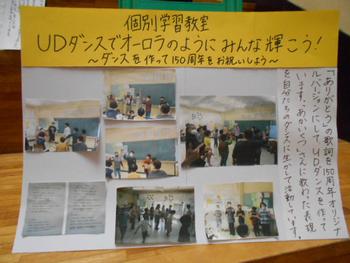 個別学習教室
UDダンスでオーロラのように みんな輝こう!
～ダンスを作って150周年をお祝いしよう～
「ありがとう」の歌詞を150周年オリジナ
ルバージョンにしてUDダンスを作って
います。あかいくつさんに教わった表現
を自分たちのダンスに生かして活動しています。